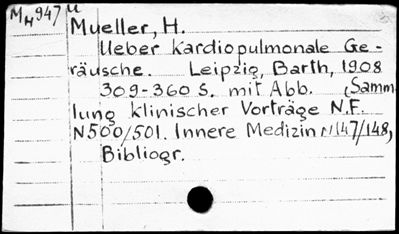 MH947 u
Mueller, H.
Ueber kardiopulmonale Ge-
räusche. Leipzig, Barth, 1908
309-360 S. mit Abb. (Samm
lung klinischer Vorträge N.F.
N500/501. Innere Medizin N147/148,
Bibliogr.